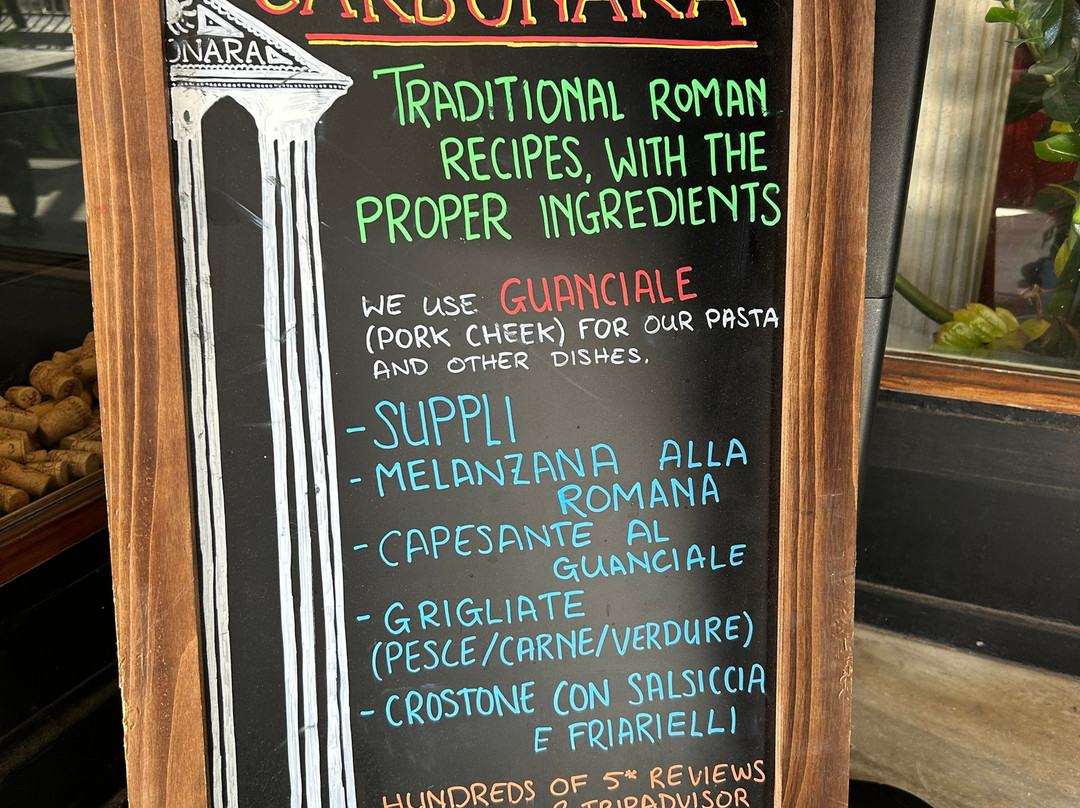 CARBONARA
ONARA
TRADITIONAL ROMAN
RECIPES, WITH THE
PROPER INGREDIENTS
WE USE GUANCIALE
(PORK CHEEK) FOR OUR PASTA
AND OTHER DISHES.
- SUPPLI
- MELANZANA ALLA
ROMANA
- CAPESANTE AL
GUANCIALE
- GRIGLIATE
(PESCE/CARNE/VERDURE)
- CROSTONE CON SALSICCIA
E FRIARIELLI
HUNDREDS OF 5* REVIEWS
TRIPADVISOR